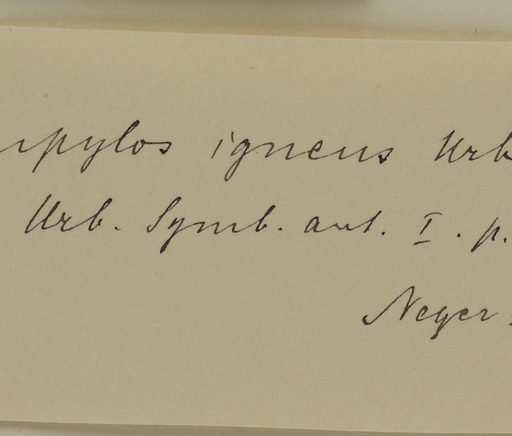 upylos igneus Urb
Urb. Symb. ant. I. p.
Neger